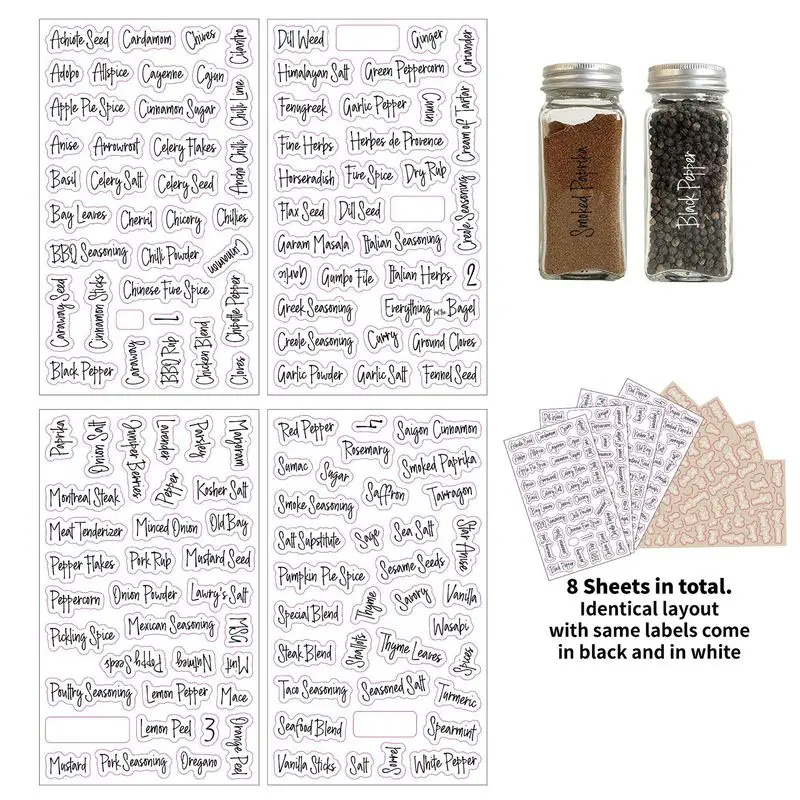 Achiote Seed
Cardamom
Chives
Cilantro
Adobo
Allspice
Cayenne
Cajun
Chili Lime
Apple Pie Spice
Cinnamon Sugar
Anise
Arrowroot
Celery Flakes
Ancho Chili
Basil
Celery Salt
Celery Seed
Bay Leaves
Chervil
Chicory
Chilies
BBQ Seasoning
Chili Powder
Cinnamon
Caraway Seed
Cinnamon Sticks
Chinese Five Spice
Chipotle Pepper
1
Black Pepper
Caraway
BBQ Rub
Chicken Blend
Cloves
Dill Weed
Ginger
Coriander
Himalayan Salt
Green Peppercorn
Fenugreek
Garlic Pepper
Cumin
Cream of Tartar
Fine Herbs
Herbes de Provence
Horseradish
Five Spice
Dry Rub
Creole Seasoning
Flax Seed
Dill Seed
Garam Masala
Italian Seasoning
Garlic
Gumbo File
Italian Herbs
2
Greek Seasoning
Everything but the Bagel
Creole Seasoning
Curry
Ground Cloves
Garlic Powder
Garlic Salt
Fennel Seed
Paprika
Onion Salt
Juniper Berries
Lavender
Parsley
Marjoram
Pepper
Montreal Steak
Kosher Salt
Meat Tenderizer
Minced Onion
Old Bay
Pepper Flakes
Pork Rub
Mustard Seed
Peppercorn
Onion Powder
Lawry's Salt
Pickling Spice
Mexican Seasoning
MSG
Poppy Seeds
Nutmeg
Mint
Poultry Seasoning
Lemon Pepper
Mace
Lemon Peel
3
Orange Peel
Mustard
Pork Seasoning
Oregano
Red Pepper
4
Saigon Cinnamon
Rosemary
Sumac
Sugar
Smoked Paprika
Smoke Seasoning
Saffron
Tarragon
Salt Substitute
Sage
Sea Salt
Star Anise
Pumpkin Pie Spice
Sesame Seeds
Special Blend
Thyme
Savory
Vanilla
Wasabi
Steak Blend
Shallots
Thyme Leaves
Spices
Taco Seasoning
Seasoned Salt
Turmeric
Seafood Blend
Spearmint
Vanilla Sticks
Salt
Sorrel
White Pepper
Smoked Paprika
Black Pepper
8 Sheets in total.
Identical layout
with same labels come
in black and in white